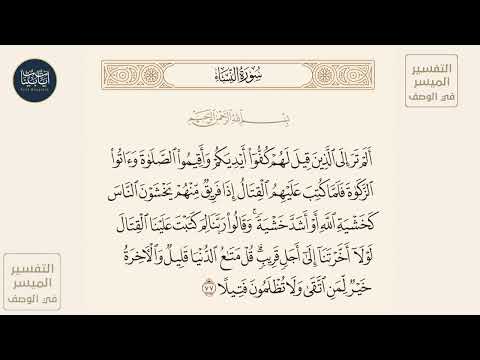 آيات بينات
التفسير
الميسر
في الوصف
سُورَةُ النِّسَاءِ
بِسْمِ اللَّهِ الرَّحْمَٰنِ الرَّحِيمِ
أَلَمْ تَرَ إِلَى ٱلَّذِينَ قِيلَ لَهُمْ كُفُّوٓا۟ أَيْدِيَكُمْ وَأَقِيمُوا۟ ٱلصَّلَوٰةَ وَءَاتُوا۟
ٱلزَّكَوٰةَ فَلَمَّا كُتِبَ عَلَيْهِمُ ٱلْقِتَالُ إِذَا فَرِيقٌ مِّنْهُمْ يَخْشَوْنَ ٱلنَّاسَ
كَخَشْيَةِ ٱللَّهِ أَوْ أَشَدَّ خَشْيَةً ۚ وَقَالُوا۟ رَبَّنَا لِمَ كَتَبْتَ عَلَيْنَا ٱلْقِتَالَ
لَوْلَآ أَخَّرْتَنَآ إِلَىٰٓ أَجَلٍ قَرِيبٍ ۗ قُلْ مَتَٰعُ ٱلدُّنْيَا قَلِيلٌ وَٱلْءَاخِرَةُ
خَيْرٌ لِّمَنِ ٱتَّقَىٰ وَلَا تُظْلَمُونَ فَتِيلًا ٧٧
التفسير
الميسر
في الوصف